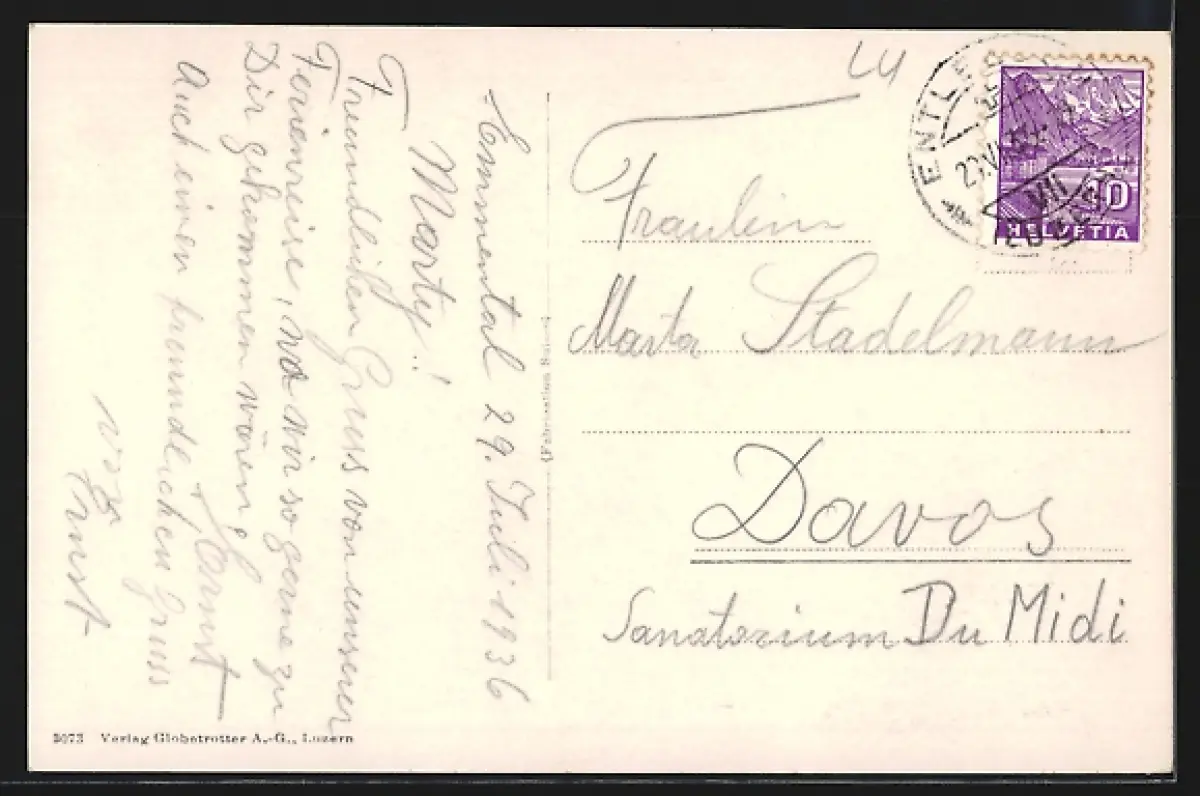 Emmental 29. Juli 1936
Marty!
Freundlichen Gruss von unserer
Ferienreise, wo wir so gerne zu
Dir gekommen wären
Auch einen freundlichen Gruss
von
Ernst
LU
Fräulein
Marta Stadelmann
Davos
Sanatorium Du Midi
ENTLE
VII
10
HELVETIA
3073 Verlag Globetrotter A.-G., Luzern